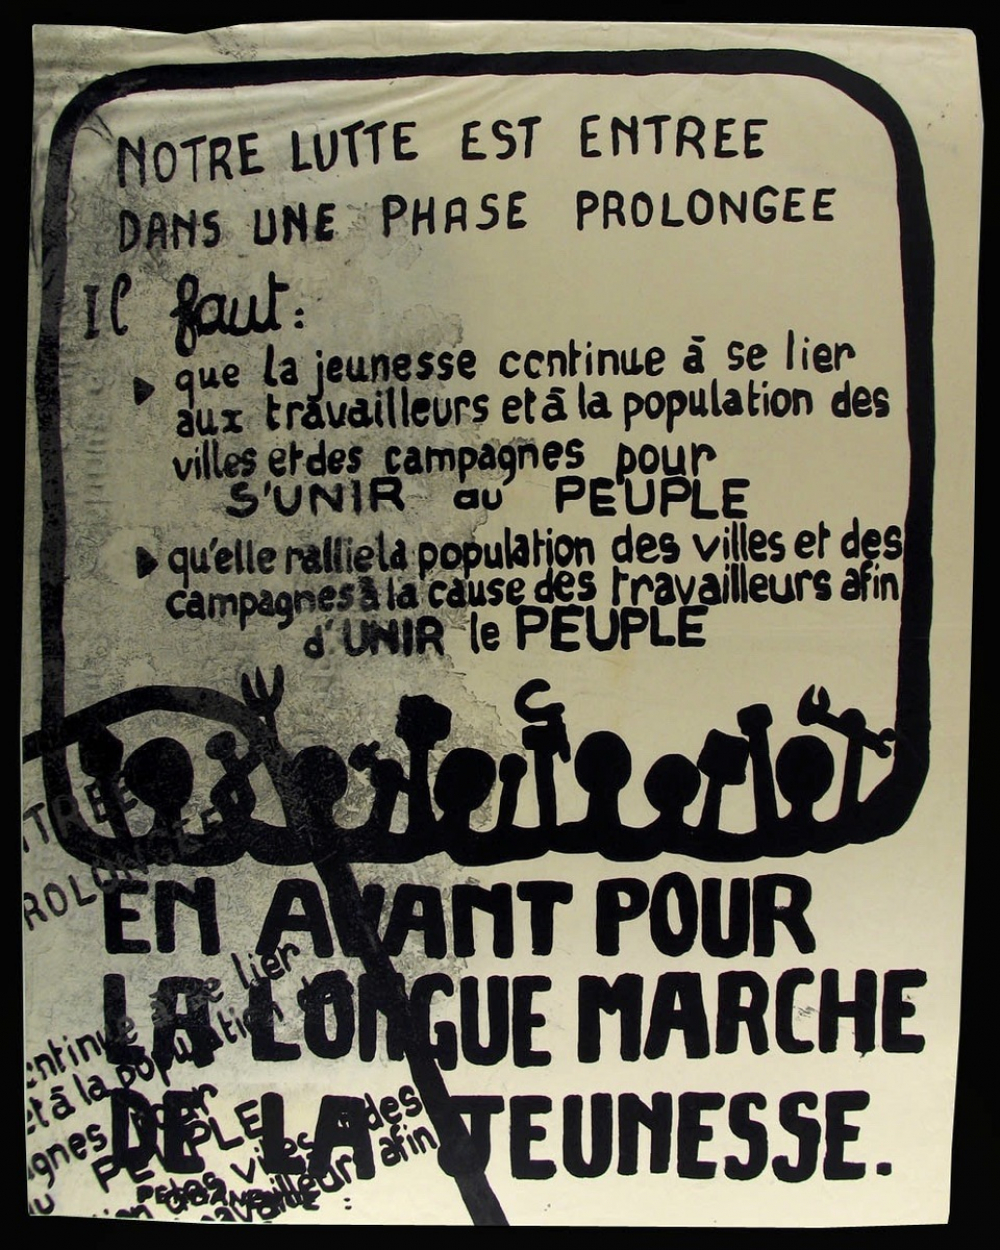 NOTRE LUTTE EST ENTREE
DANS UNE PHASE PROLONGEE
Il faut:
que la jeunesse continue à se lier
aux travailleurs et à la population des
villes et des campagnes pour
S'UNIR au PEUPLE
qu'elle rallie la population des villes et des
campagnes à la cause des travailleurs afin
d'UNIR le PEUPLE
EN AVANT POUR
LA LONGUE MARCHE
DE LA JEUNESSE.
TREE
ROLONGEE
ntinue à se lier
et à la population
gnes pour
PEUPLE
villes des
availleurs afin